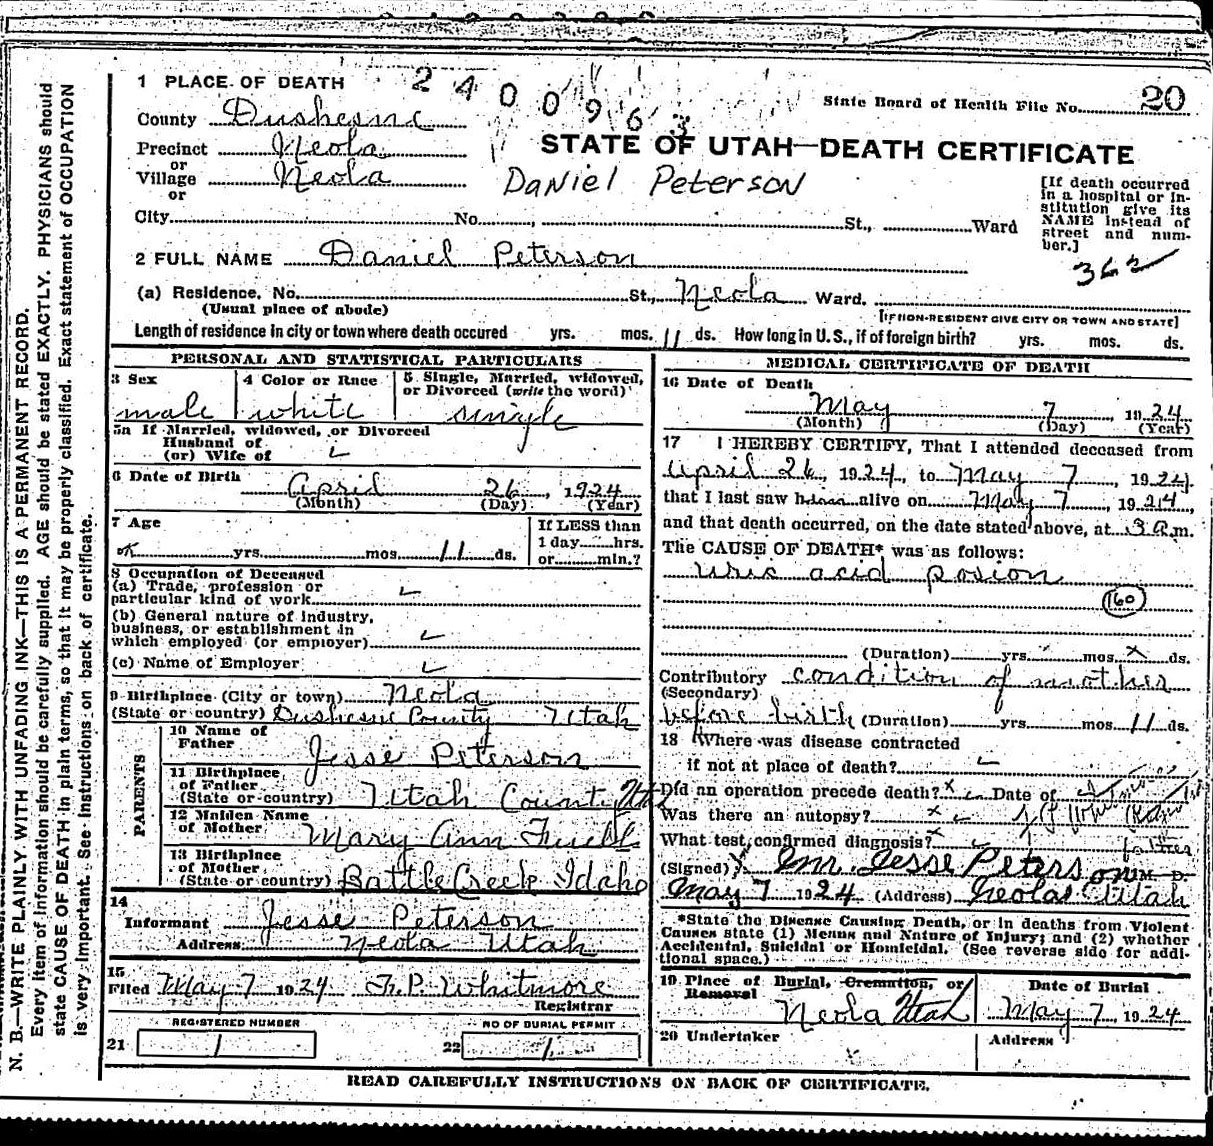 2400963
1 PLACE OF DEATH
State Board of Health File No. 20
County Dushesne
STATE OF UTAH—DEATH CERTIFICATE
Precinct Neola
or
Village Neola
Daniel Peterson
or
City No. St., Ward
[If death occurred
in a hospital or in-
stitution give its
NAME instead of
street and num-
ber.]
362
2 FULL NAME Daniel Peterson
(a) Residence. No. St., Neola Ward.
(Usual place of abode)
[IF NON-RESIDENT GIVE CITY OR TOWN AND STATE]
Length of residence in city or town where death occured yrs. mos. 11 ds. How long in U. S., if of foreign birth? yrs. mos. ds.
PERSONAL AND STATISTICAL PARTICULARS
3 Sex
male
4 Color or Race
white
5 Single, Married, widowed,
or Divorced (write the word)
single
5a If Married, widowed, or Divorced
Husband of
(or) Wife of
6 Date of Birth
April 26, 1924
(Month) (Day) (Year)
7 Age
yrs. mos. 11 ds.
If LESS than
1 day hrs.
or min.?
8 Occupation of Deceased
(a) Trade, profession or
particular kind of work
(b) General nature of industry,
business, or establishment in
which employed (or employer)
(c) Name of Employer
9 Birthplace (City or town) Neola
(State or country) Dushesne County Utah
PARENTS
10 Name of
Father Jesse Peterson
11 Birthplace
of Father
(State or country) Utah County Utah
12 Maiden Name
of Mother Mary Ann
13 Birthplace
of Mother
(State or country) Battle Creek Idaho
14
Informant Jesse Peterson
Address Neola Utah
15
Filed May 7 1924 F.P. Whitmore
Registrar
REGISTERED NUMBER
21 1
NO OF BURIAL PERMIT
22 1
MEDICAL CERTIFICATE OF DEATH
16 Date of Death
May 7 1924
(Month) (Day) (Year)
17 I HEREBY CERTIFY, That I attended deceased from
April 26, 1924, to May 7, 1924
that I last saw him alive on May 7, 1924,
and that death occurred, on the date stated above, at 3 a.m.
The CAUSE OF DEATH* was as follows:
Uric acid posion
160
(Duration) yrs. mos. x ds.
Contributory condition of mother
(Secondary)
before birth (Duration) yrs. mos. 11 ds.
18 Where was disease contracted
if not at place of death?
Did an operation precede death? x Date of
Was there an autopsy? x
What test confirmed diagnosis? x
father
(Signed) x Mr. Jesse Peterson M. D.
May 7 1924 (Address) Neola Utah
*State the Disease Causing Death, or in deaths from Violent
Causes state (1) Means and Nature of Injury; and (2) whether
Accidental, Suicidal or Homicidal. (See reverse side for addi-
tional space.)
19 Place of Burial, Cremation, or
Removal
Neola Utah
Date of Burial
May 7, 1924
20 Undertaker
Address
READ CAREFULLY INSTRUCTIONS ON BACK OF CERTIFICATE.
N. B.—WRITE PLAINLY, WITH UNFADING INK—THIS IS A PERMANENT RECORD.
Every item of information should be carefully supplied. AGE should be stated EXACTLY. PHYSICIANS should
state CAUSE OF DEATH in plain terms, so that it may be properly classified. Exact statement of OCCUPATION
is very important. See instructions on back of certificate.